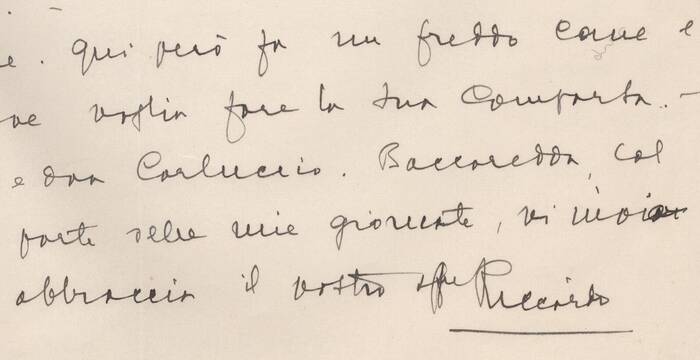 e. Qui però fa un freddo cane e
ve voglia fare la sua comparsa. -
e don Carluccio. Baccaredda, col
parte delle mie giornate, vi invia
abbraccia il vostro aff Riccardo